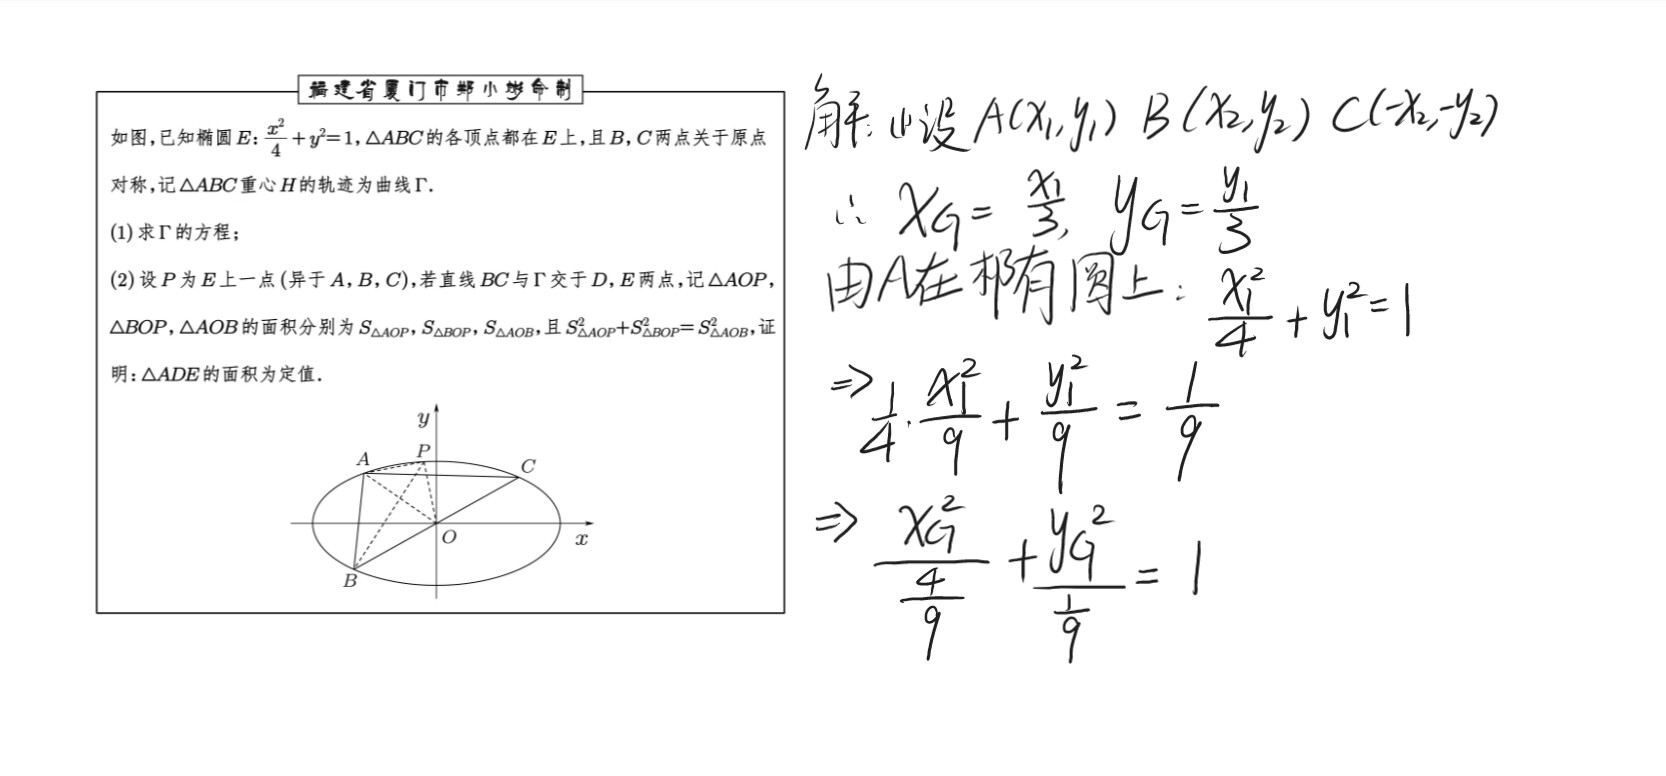 福建省厦门市郑小彬命制
如图,已知椭圆E: x²/4 + y²=1, △ABC的各顶点都在E上,且B,C两点关于原点
对称,记△ABC重心H的轨迹为曲线Γ.
(1)求Γ的方程;
(2)设P为E上一点(异于A,B,C),若直线BC与Γ交于D,E两点,记△AOP,
△BOP,△AOB的面积分别为S△AOP,S△BOP,S△AOB,且S²△AOP+S²△BOP=S²△AOB,证
明:△ADE的面积为定值.
y
A
P
C
O
x
B
解: (1)设A(x₁,y₁) B(x₂,y₂) C(-x₂,-y₂)
∴ x_G = x₁/3, y_G = y₁/3
由A在椭圆上: x₁²/4 + y₁² = 1
⇒ 1/4 · x₁²/9 + y₁²/9 = 1/9
⇒ x_G²/(4/9) + y_G²/(1/9) = 1